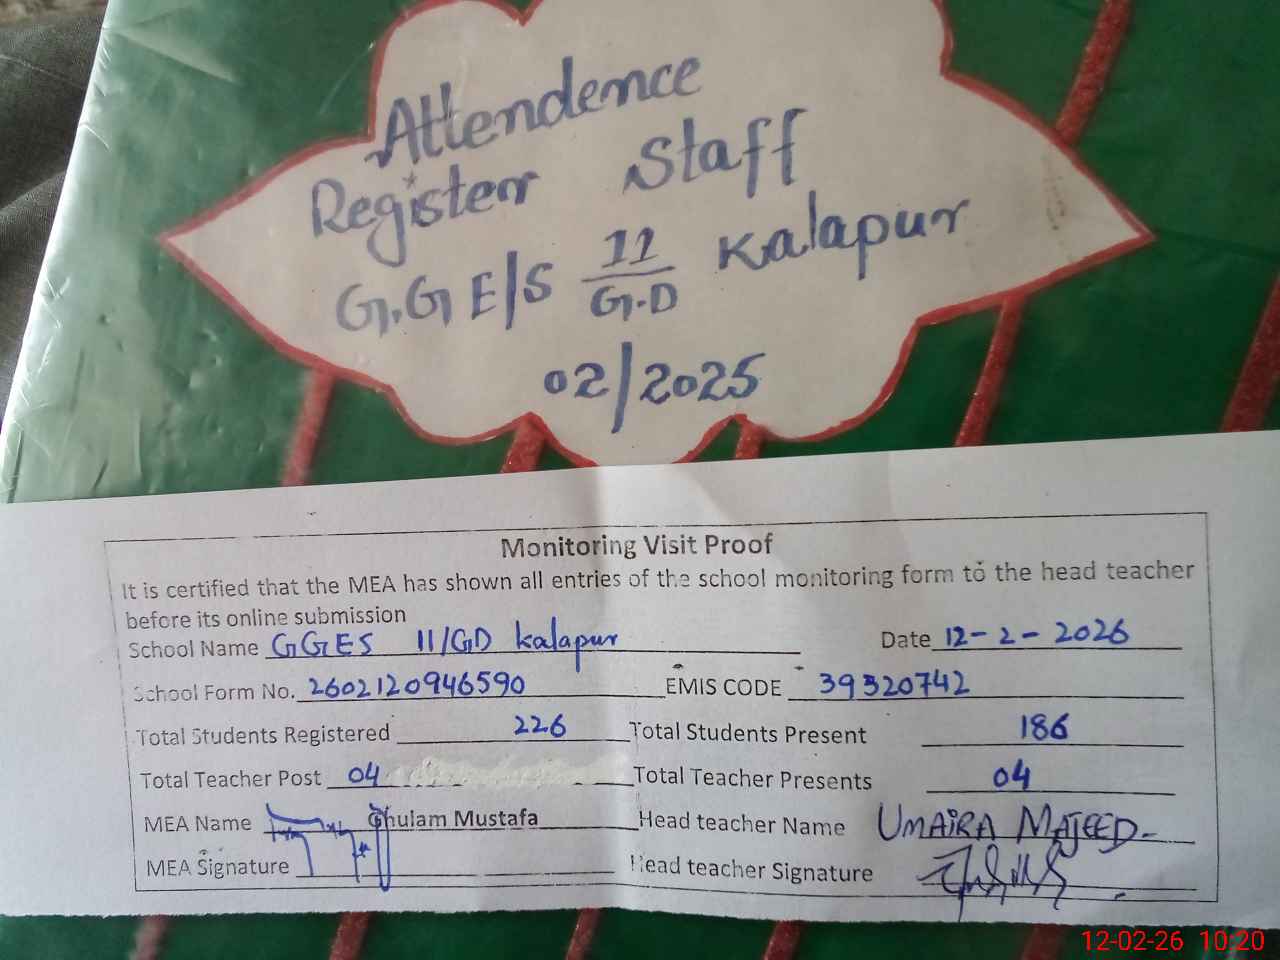 Attendence
Register Staff
G.G E/S 11/G.D Kalapur
02/2025
Monitoring Visit Proof
It is certified that the MEA has shown all entries of the school monitoring form to the head teacher
before its online submission
School Name GGES 11/GD Kalapur Date 12-2-2026
School Form No. 2602120946590 EMIS CODE 39320742
Total Students Registered 226 Total Students Present 186
Total Teacher Post 04 Total Teacher Presents 04
MEA Name Ghulam Mustafa Head teacher Name UMAIRA MAJEED-
MEA Signature Head teacher Signature
12-02-26 10:20